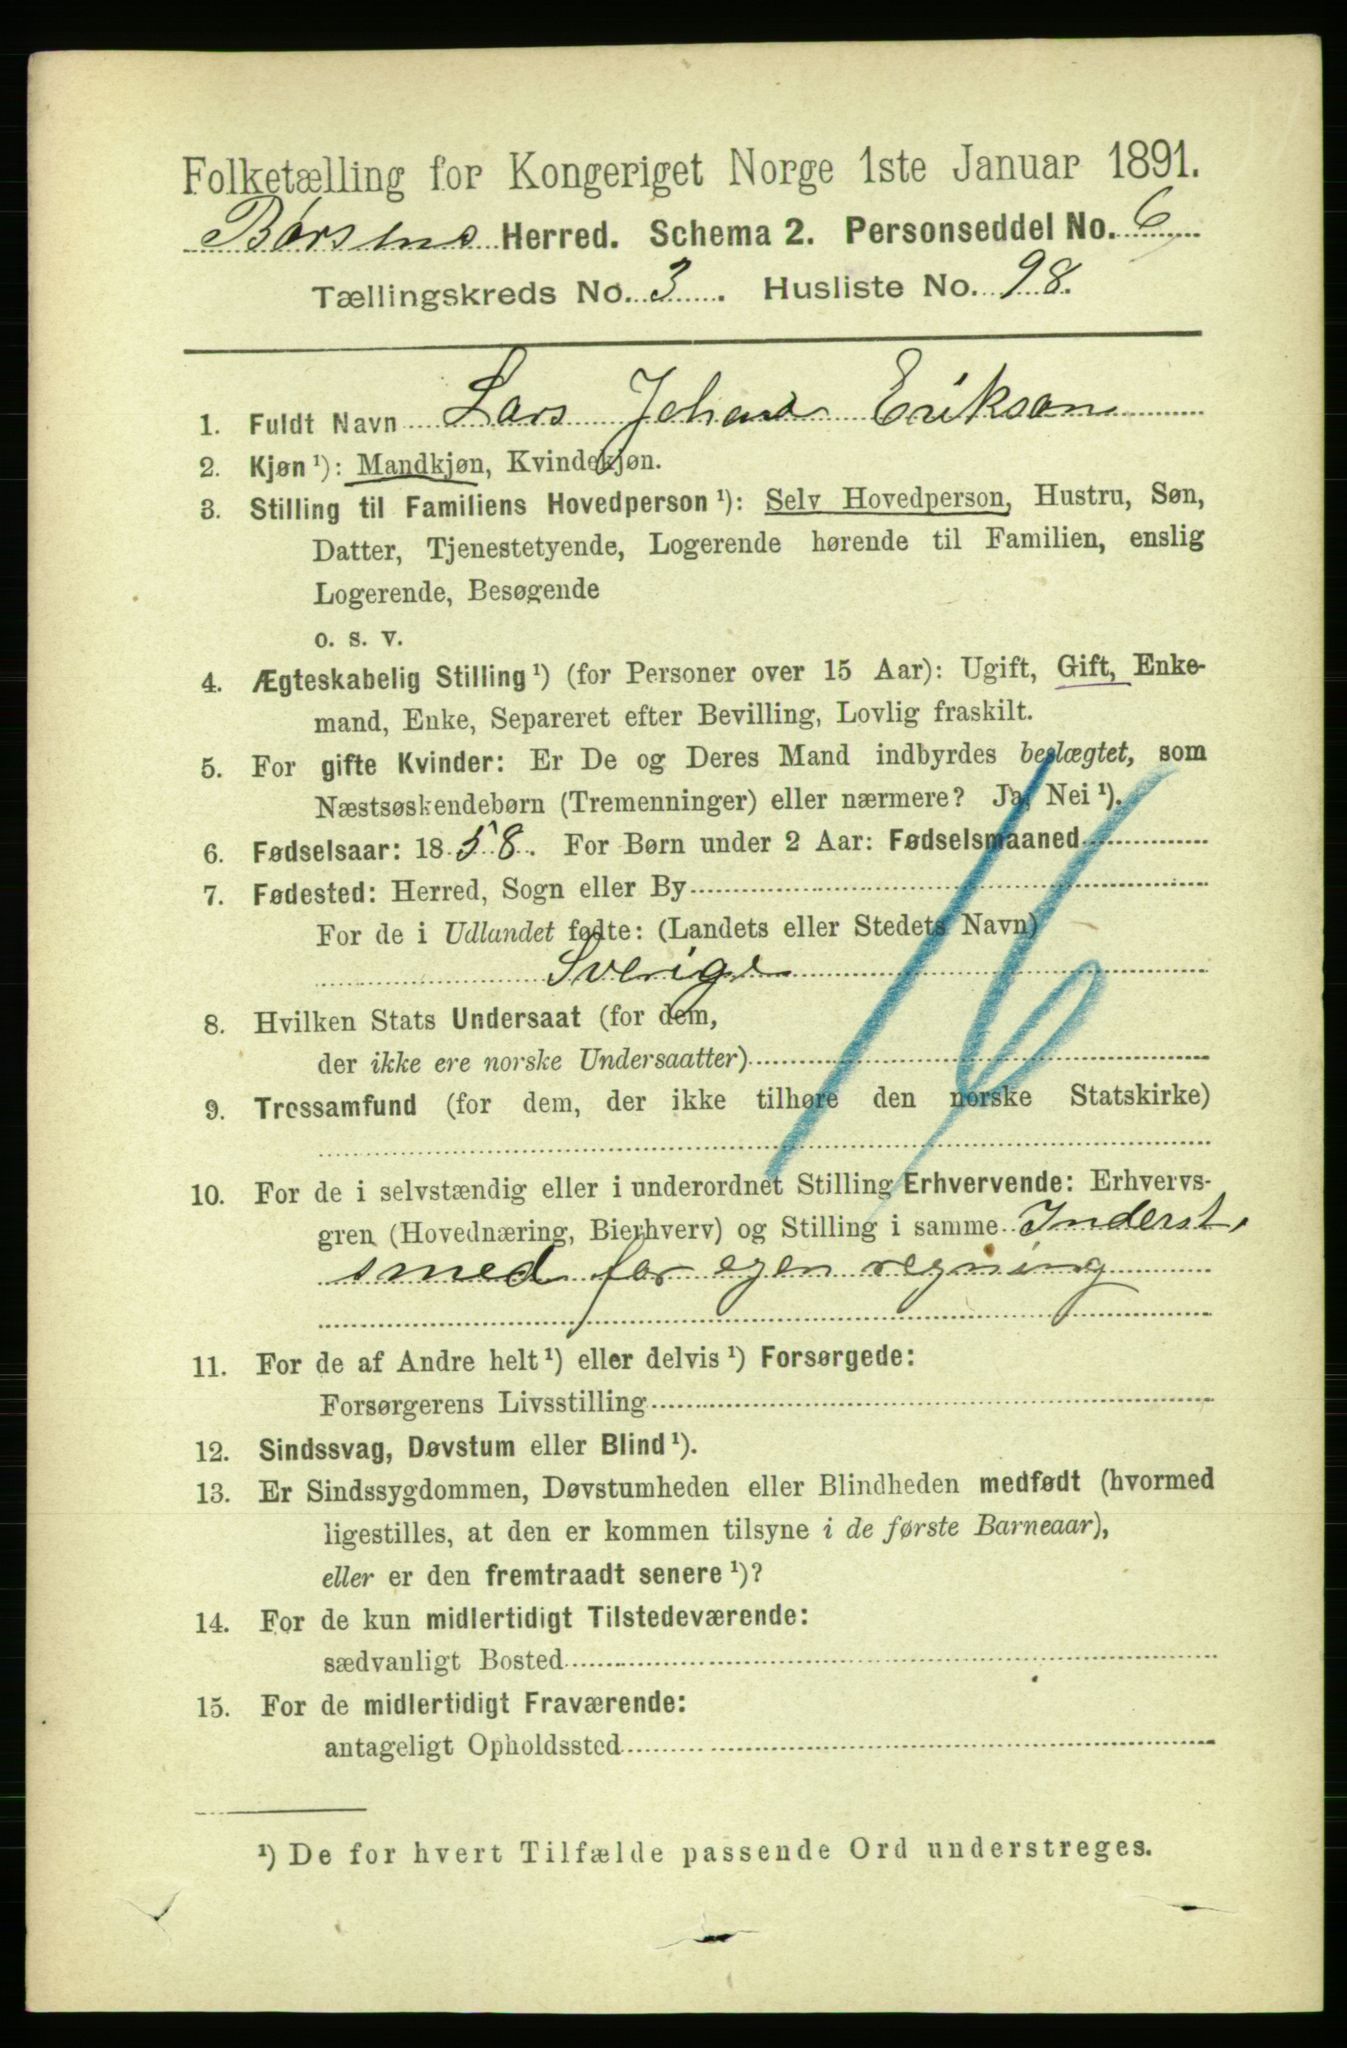 Folketælling for Kongeriget Norge 1ste Januar 1891.
Børsens Herred. Schema 2. Personseddel No. 6
Tællingskreds No. 3. Husliste No. 98.
1. Fuldt Navn Lars Johan Erikson
2. Kjøn ¹): Mandkjøn, Kvindekjøn.
3. Stilling til Familiens Hovedperson ¹): Selv Hovedperson, Hustru, Søn,
Datter, Tjenestetyende, Logerende hørende til Familien, enslig
Logerende, Besøgende
o. s. v.
4. Ægteskabelig Stilling ¹) (for Personer over 15 Aar): Ugift, Gift, Enke-
mand, Enke, Separeret efter Bevilling, Lovlig fraskilt.
5. For gifte Kvinder: Er De og Deres Mand indbyrdes beslægtet, som
Næstsøskendebørn (Tremenninger) eller nærmere? Ja, Nei ¹).
6. Fødselsaar: 1858. For Børn under 2 Aar: Fødselsmaaned
7. Fødested: Herred, Sogn eller By
For de i Udlandet fødte: (Landets eller Stedets Navn)
Sverige
8. Hvilken Stats Undersaat (for dem,
der ikke ere norske Undersaatter)
9. Trossamfund (for dem, der ikke tilhøre den norske Statskirke)
10. For de i selvstændig eller i underordnet Stilling Erhvervende: Erhvervs-
gren (Hovednæring, Bierhverv) og Stilling i samme Inderst,
smed for egen regning
11. For de af Andre helt ¹) eller delvis ¹) Forsørgede:
Forsørgerens Livsstilling
12. Sindssvag, Døvstum eller Blind ¹).
13. Er Sindssygdommen, Døvstumheden eller Blindheden medfødt (hvormed
ligestilles, at den er kommen tilsyne i de første Barneaar),
eller er den fremtraadt senere ¹)?
14. For de kun midlertidigt Tilstedeværende:
sædvanligt Bosted
15. For de midlertidigt Fraværende:
antageligt Opholdssted
¹) De for hvert Tilfælde passende Ord understreges.